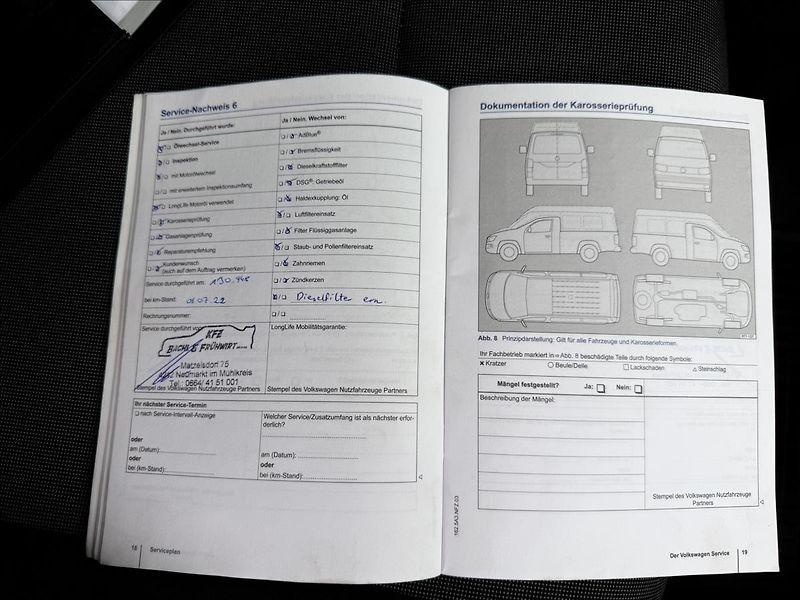 Service-Nachweis 6
Ja / Nein. Durchgeführt wurde:
□/□ Ölwechsel-Service
□/□ Inspektion
□/□ mit Motorölwechsel
□/□ mit erweitertem Inspektionsumfang
□/□ LongLife Motoröl verwendet
□/□ Karosserieprüfung
□/□ Gasanlagenprüfung
□/□ Reparaturempfehlung
□/□ Kundenwunsch
(auch auf dem Auftrag vermerken)
Service durchgeführt am: 130.948
bei km-Stand: 06.07.22
Rechnungsnummer:
Service durchgeführt von:
KFZ
BACHL & FRÜHWIRT
Matzelsdorf 75
4212 Neumarkt im Mühlkreis
Tel.: 0664/ 41 51 001
Stempel des Volkswagen Nutzfahrzeuge Partners
Ja / Nein. Wechsel von:
□/□ AdBlue®
□/□ Bremsflüssigkeit
□/□ Dieselkraftstofffilter
□/□ DSG®: Getriebeöl
□/□ Haldexkupplung: Öl
□/□ Luftfiltereinsatz
□/□ Filter Flüssiggasanlage
□/□ Staub- und Pollenfiltereinsatz
□/□ Zahnriemen
□/□ Zündkerzen
□/□ Dieselfilter ern.
□/□
LongLife Mobilitätsgarantie:
Stempel des Volkswagen Nutzfahrzeuge Partners
Ihr nächster Service-Termin
□ nach Service-Intervall-Anzeige
oder
am (Datum):
oder
bei (km-Stand):
Welcher Service/Zusatzumfang ist als nächster erfor-
derlich?
am (Datum):
oder
bei (km-Stand):
18 Serviceplan
Dokumentation der Karosserieprüfung
Abb. 8 Prinzipdarstellung: Gilt für alle Fahrzeuge und Karosserieformen.
Ihr Fachbetrieb markiert in ⇒ Abb. 8 beschädigte Teile durch folgende Symbole:
✖ Kratzer ○ Beule/Delle □ Lackschaden △ Steinschlag
Mängel festgestellt? Ja: □ Nein: □
Beschreibung der Mängel:
Stempel des Volkswagen Nutzfahrzeuge
Partners
162.5A3.NFZ.03
Der Volkswagen Service 19